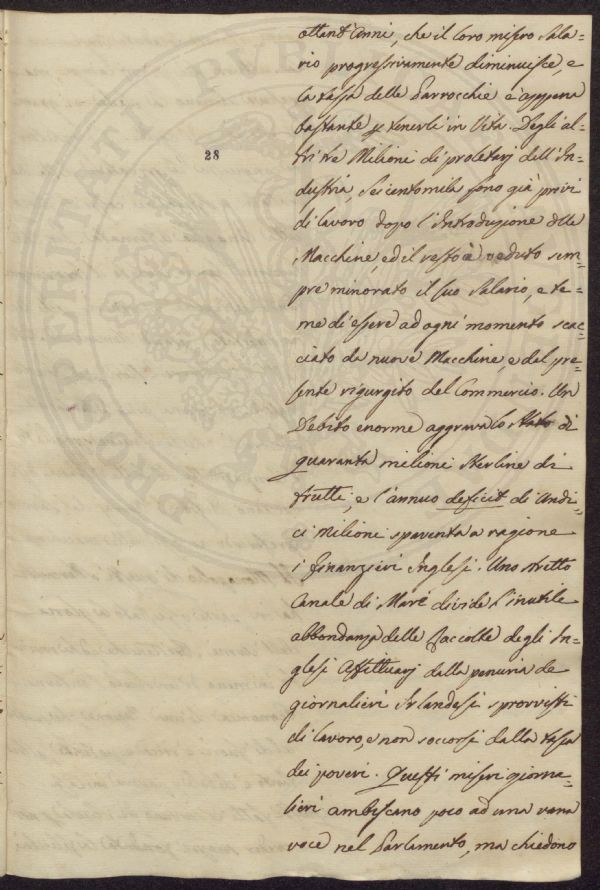 ottant'anni, che il loro misero Sala=
rio progressivamente diminuisce, e
la tassa delle Parrocchie è appena
bastante p tenerli in Vita. Degli al=
tri tre Milioni di proletarj dell'In=
dustria, Seicentomila sono già privi
di lavoro dopo l'Introduzione delle
Macchine, ed il resto à veduto sem=
pre minorato il suo Salario, e te=
me di essere ad ogni momento scac=
ciato da nuove Macchine, e dal pre=
sente rigurgito del Commercio. Un
Debito enorme aggrava lo Stato di
quaranta milioni Sterline di
frutti, e l'annuo deficit di Undi=
ci Milioni spaventa a ragione
i finanzieri Inglesi. Uno stretto
Canale di Mare divide l'inutile
abbondanza delle Raccolte degli In=
glesi Affittuarj dalla penuria de
giornalieri Irlandesi sprovvisti
di lavoro, e non soccorsi dalla tassa
dei poveri. Questi miseri giorna=
lieri ambiscano poco ad una vana
voce nel Parlamento, ma chiedono
28
PROSPERITATI PVB